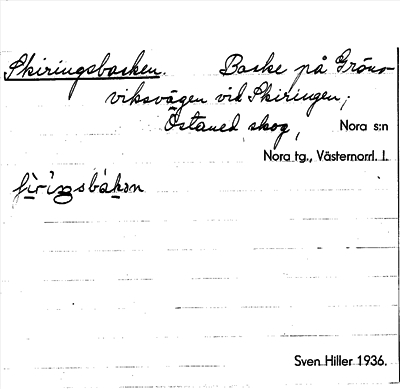 Skiringsbacken. Backe på Gröns-
viksvägen vid Skiringen;
Östaned skog, Nora s:n
Nora tg., Västernorrl. l.
Sven Hiller 1936.